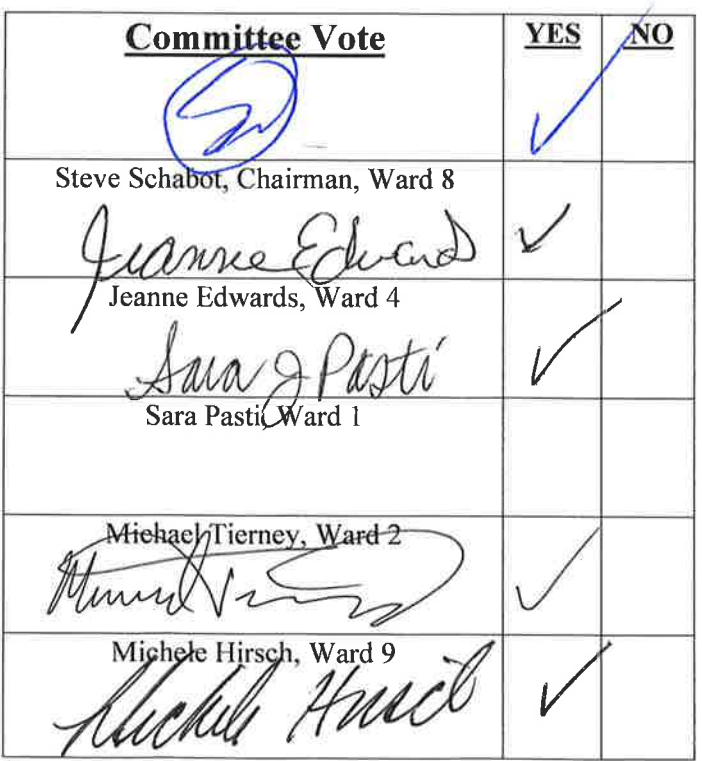 Committee Vote YES NO
✓
Steve Schabot, Chairman, Ward 8
Jeanne Edwards ✓
Jeanne Edwards, Ward 4
Sara J Pasti ✓
Sara Pasti, Ward 1
Michael Tierney, Ward 2
✓
Michele Hirsch, Ward 9
Michele Hirsch ✓